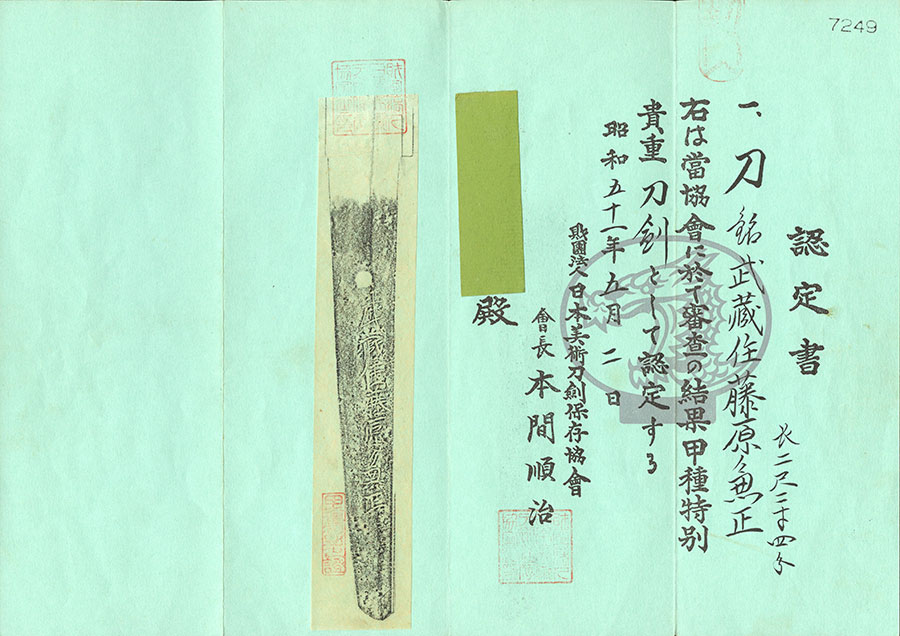 7249
認定書
一、刀 銘 武藏住藤原兼正
長二尺二寸四分
右は當協會に於て審査の結果甲種特別
貴重刀劍として認定する
昭和五十一年五月二日
財團法人日本美術刀劍保存協會
會長 本間順治
殿
武藏住藤原兼正